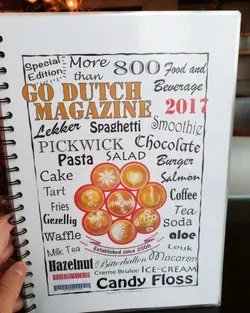 Special Edition More than 800 Food and Beverage
GO DUTCH
MAGAZINE 2017
Lekker Spaghetti Smoothie
PICKWICK Chocolate
Pasta SALAD Burger
Cake Salmon
Tart
Fries Coffee
Gezellig Tea
Waffle Soda
Milk Tea aloe
Established since 2006 Leuk
Hazelnut Bitterballen Macaron
Creme Brulee ICE-CREAM
Candy Floss